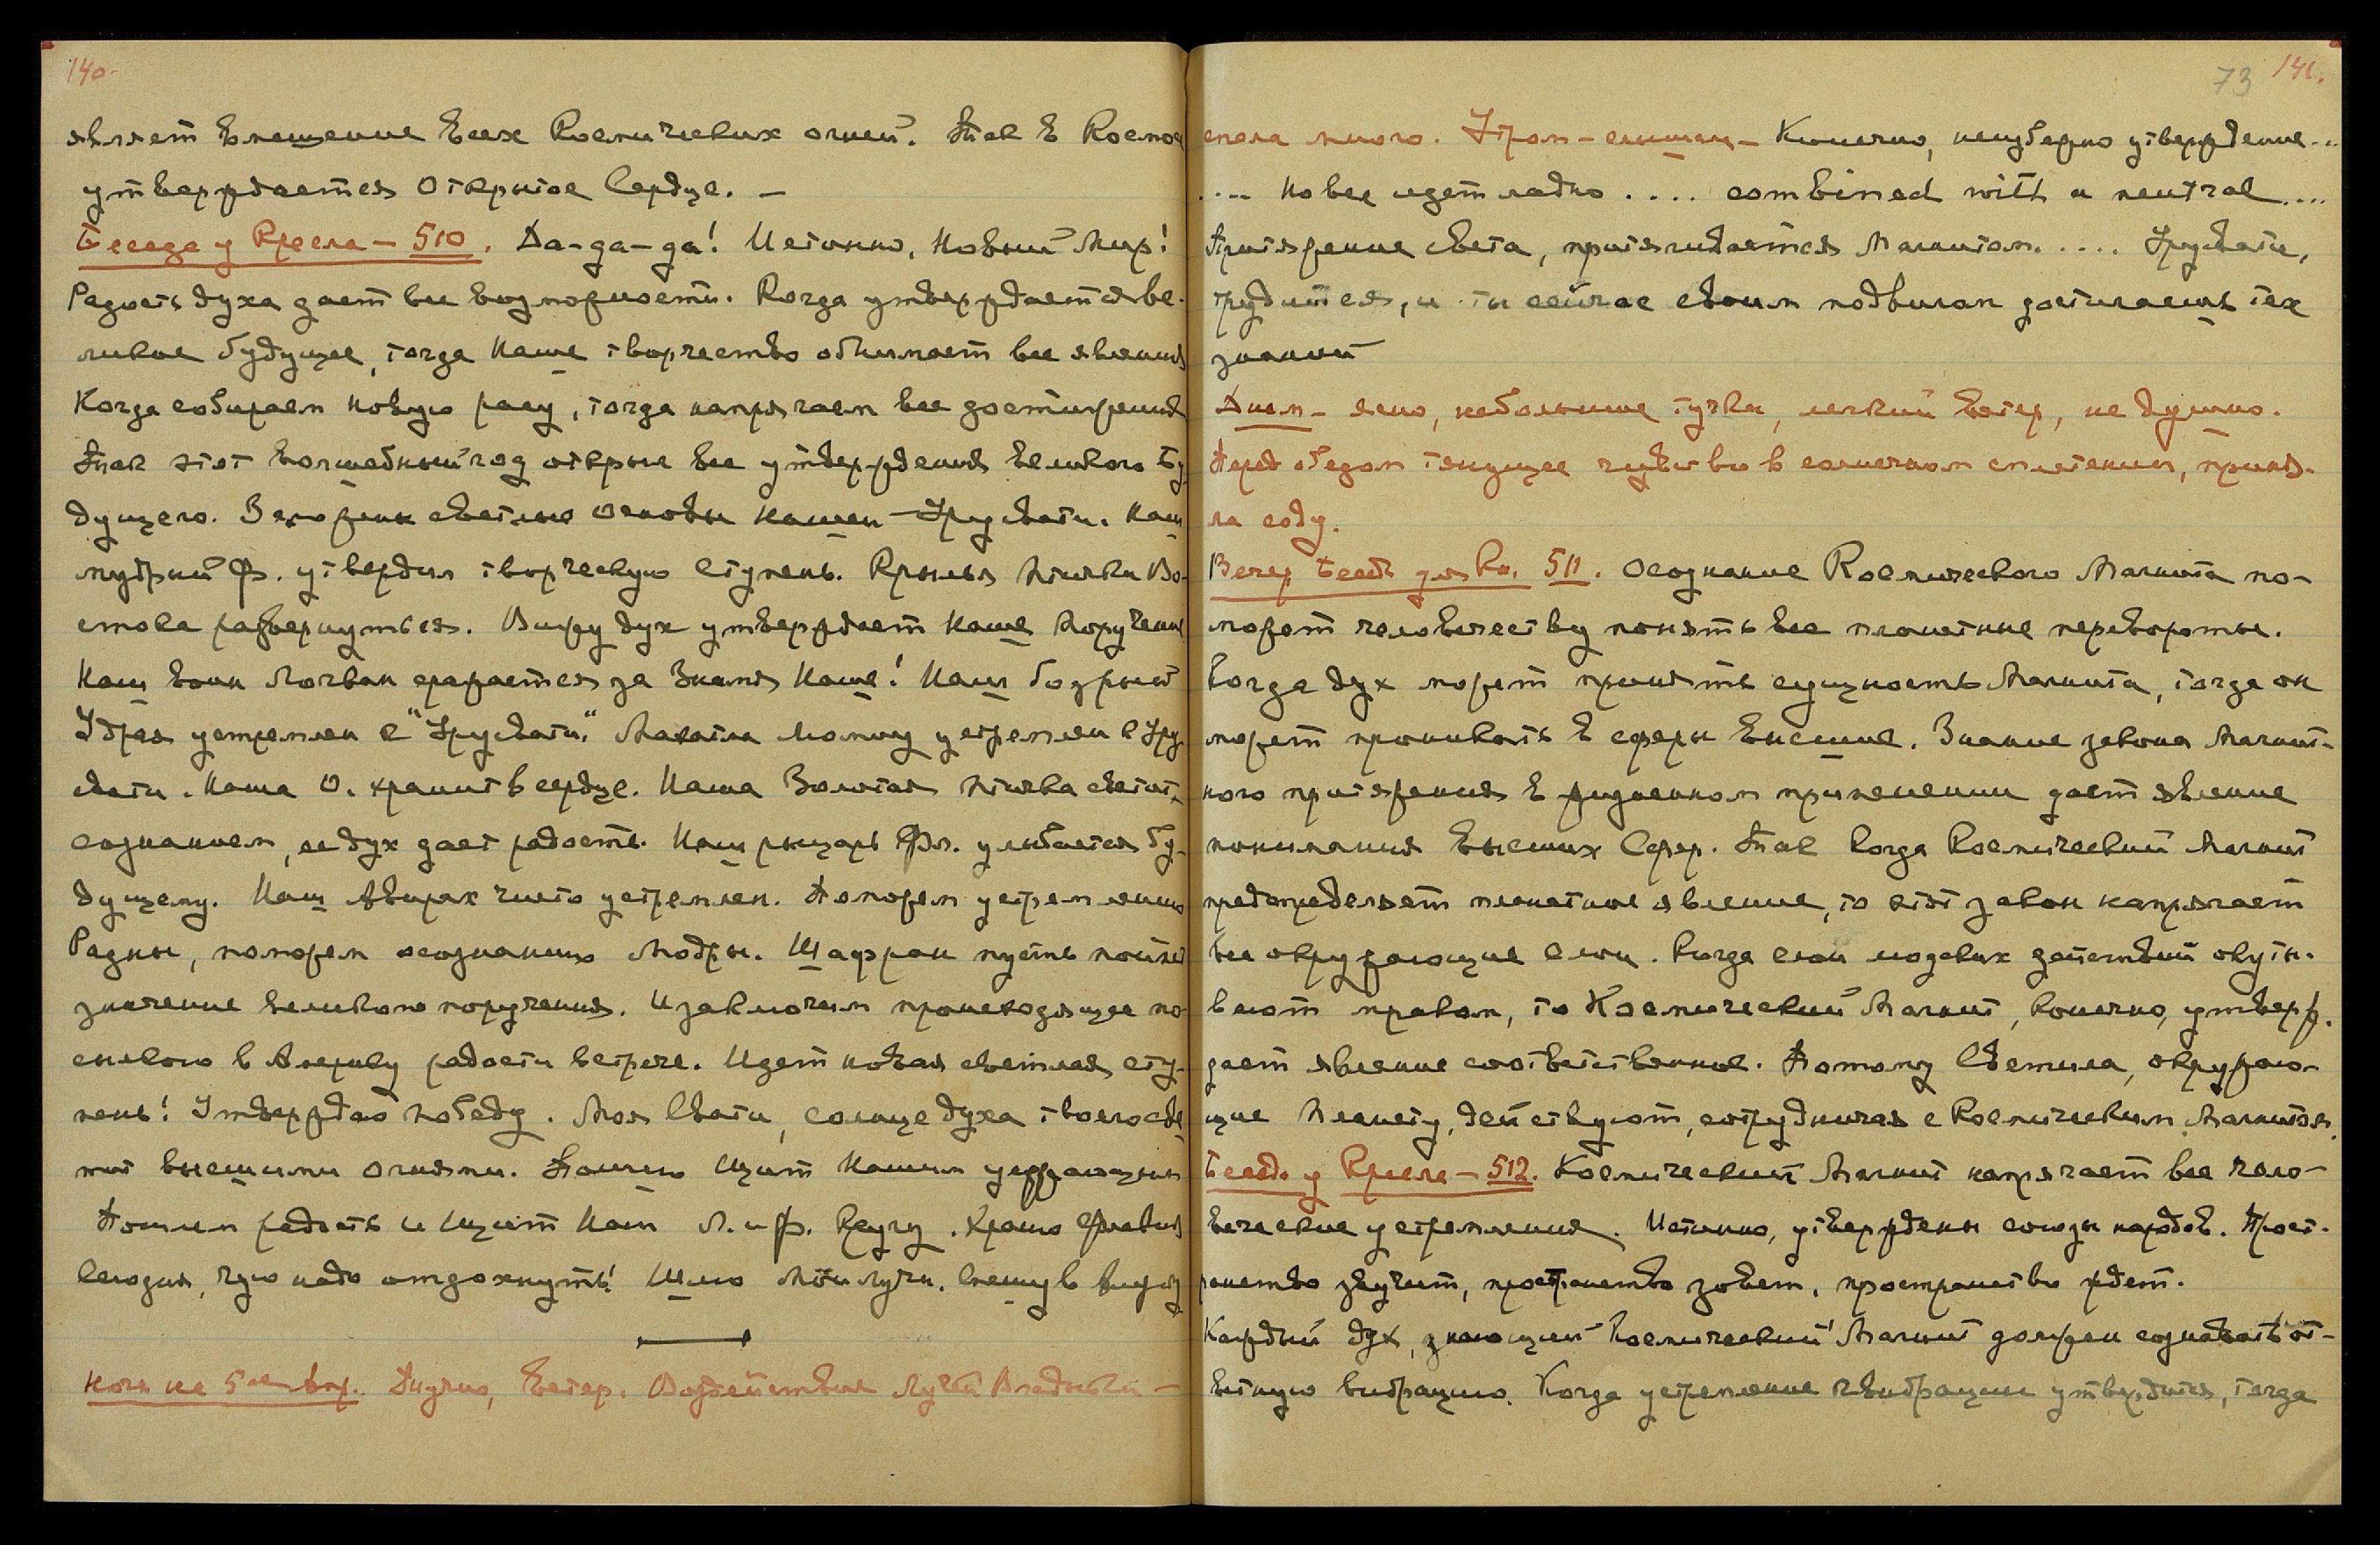 140-
являет вмещение всех Космических огней. Так в Космосе
утверждается Открытое Сердце. —
Беседа у Кресла — 510. Да-да-да! Истинно, Новый Мир!
Радость духа дает все возможности. Когда утверждается ве-
ликое будущее, тогда Наше творчество обнимает все явления
Когда собираем новую расу, тогда напрягаем все достижения
Так этот волшебный год открыл все утверждения великого Бу
дущего. Заложены светлые основы нашей Урусвати. Наш
мудрый Ф. утвердил творческую ступень. Крылья птички Во-
стока развернуться. Вижу дух утверждает Наше Поручение
Наш воин Логван сражается за Знамя Наше! Наш бодрый
Удрая устремлен с "Урусвати". Махатма Мориу устремлен с Уру
свати. Наша О. хранит в сердце. Наша Золотая птичка светит
сознанием, ее дух дает радость. Наш рыцарь Фл. улыбается бу-
дущему. Наш Авирах чисто устремлен. Поможем устремлению
Радны, поможем осознанию Модры. Шафран пусть поймет
значение великого поручения. И заключим происходящее по-
сылкою в Америку радости встрече. Идет новая светлая сту-
пень! Утверждаю победу. Моя Свати, солнце духа твоего све
тит высшими огнями. Пошлю Щит Нашим уезжающим
Пошлем радость и Щит Наш Л. и Ф. Кругу. Храню Флавия
Сегодня, чую надо отдохнуть! Шлю Мои Лучи. Спешу в Индию
Ночь на 5ое Апр. Душно, ветер. Воздействие Лучей Владыки —
73 141.
спала много. Утром - слышу - Конечно, неизбежно утверждение...
.... Но все идет ладно .... combined with a neutral ....
Притяжение света, притягивается Магнитом. .... Урусвати,
трудится, и ты сейчас своим подвигом достигаешь тех
знаний
Днем - ясно, небольшие тучки, легкий ветер, не душно.
Перед обедом тянущее чувство в солнечном сплетении, приня-
ла соду.
Вечер Бесед. для Кн. 511. Осознание Космического Магнита по-
может человечеству понять все планетные перевороты.
Когда дух может принять сущность Магнита, тогда он
может проникать в сферы Высшие. Знание закона Магнит-
ного притяжения в жизненном применении дает явление
понимания Высших Сфер. Так когда Космический Магнит
предопределяет планетное явление, то этот закон напрягает
все окружающие слои. Когда слои людских действий окуты-
вают мраком, то Космический Магнит, конечно, утверж-
дает явление соответственное. Потому Светила, окружаю-
щие Планету, действуют, сотрудничая с Космическим Магнитом.
Беседа у Кресла — 512. Космический Магнит напрягает все чело-
веческие устремления. Истинно, утверждены союзы народов. Прост-
ранство звучит, пространство зовет, пространство ждет.
Каждый дух, знающий Космический Магнит должен сознавать от-
ветную вибрацию. Когда устремление к вибрации утвердится, тогда